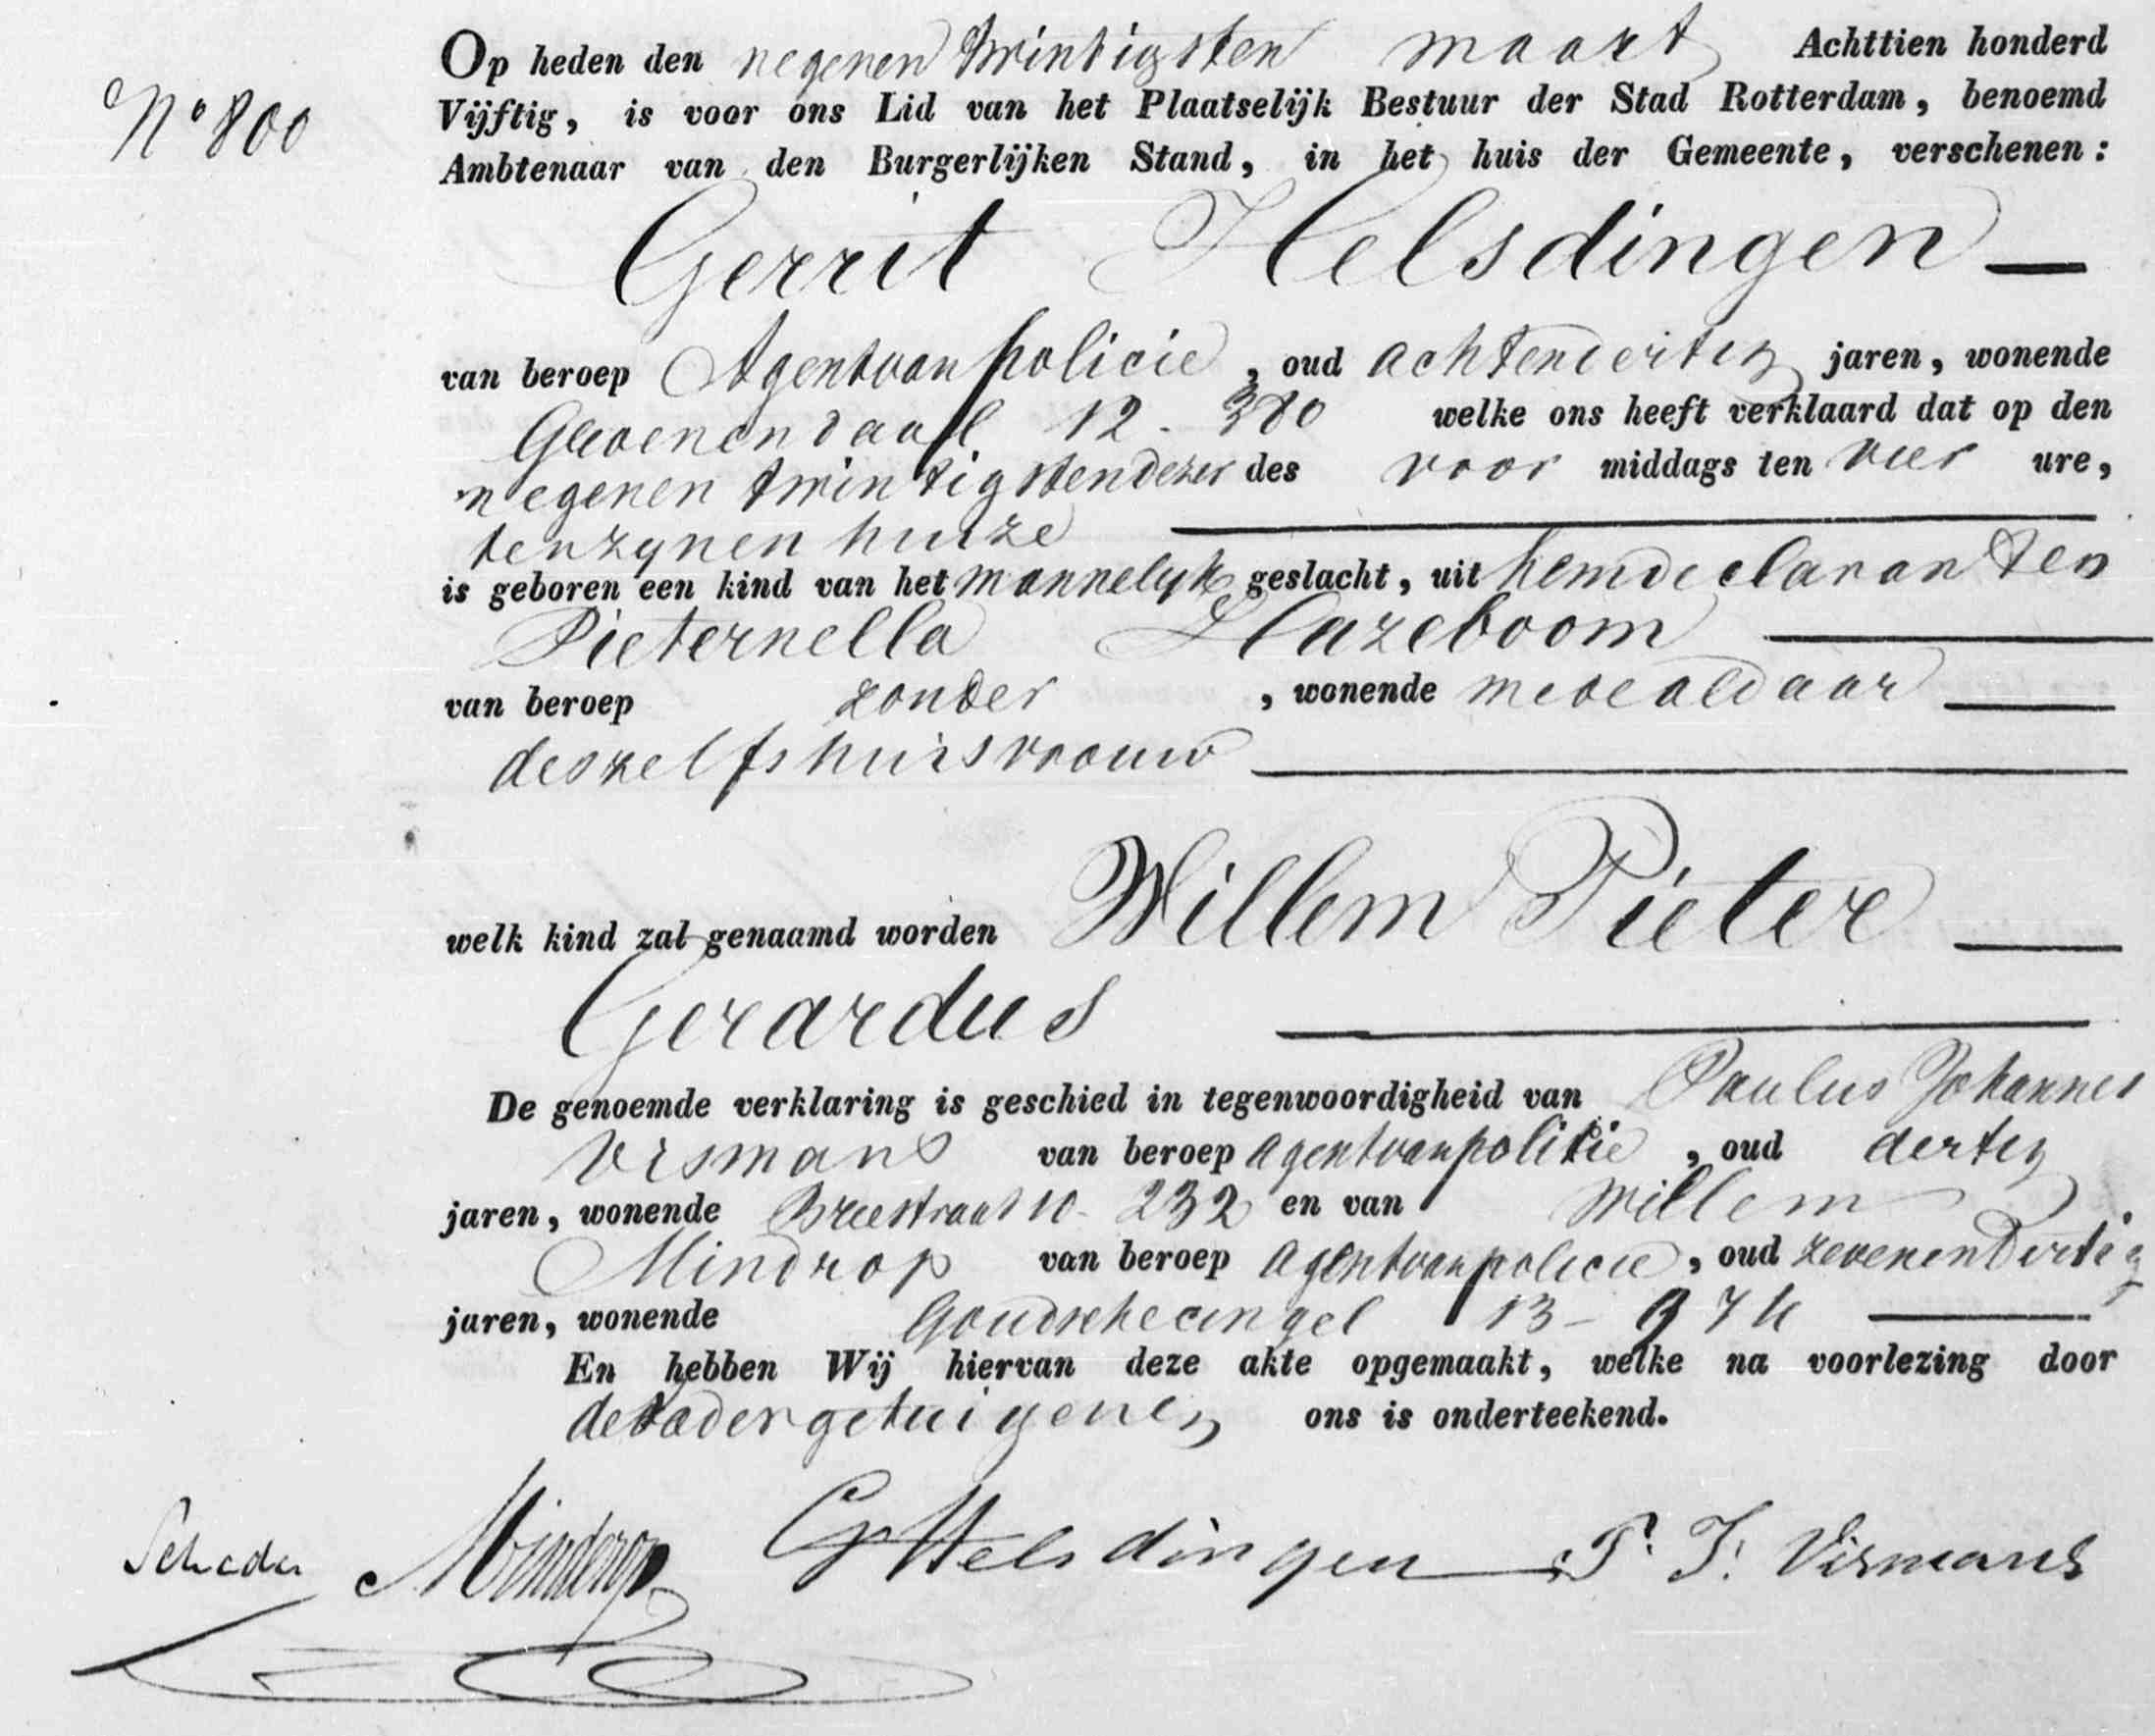 Op heden den negenen twintigsten maart Achttien honderd
No 800
Vijftig, is voor ons Lid van het Plaatselijk Bestuur der Stad Rotterdam, benoemd
Ambtenaar van den Burgerlijken Stand, in het huis der Gemeente, verschenen:
Gerrit Helsdingen
van beroep Agent van policie, oud achtendertig jaren, wonende
Groenendaal 12. 380 welke ons heeft verklaard dat op den
negenen twintigsten dezer des voor middags ten vier ure,
ten zynen huize
is geboren een kind van het mannelyk geslacht, uit hem declarant en
Pieternella Hazeboom
van beroep zonder, wonende mede aldaar
deszelfs huisvrouw
welk kind zal genaamd worden Willem Pieter
Gerardus
De genoemde verklaring is geschied in tegenwoordigheid van Paulus Johannes
Vismans van beroep agent van politie, oud dertig
jaren, wonende Breestraat 10- 232 en van Willem
Mindrop van beroep agent van policie, oud zevenen dertig
jaren, wonende Goudschecingel 13 -
En hebben Wij hiervan deze akte opgemaakt, welke na voorlezing door
de vader getuigen en ons is onderteekend.
Minderop G Helsdingen P. J. Vismans